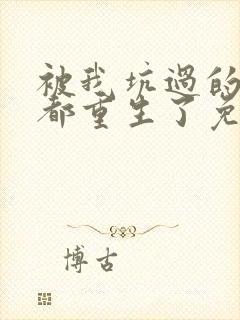 被我坑过的
都重生了免
博古